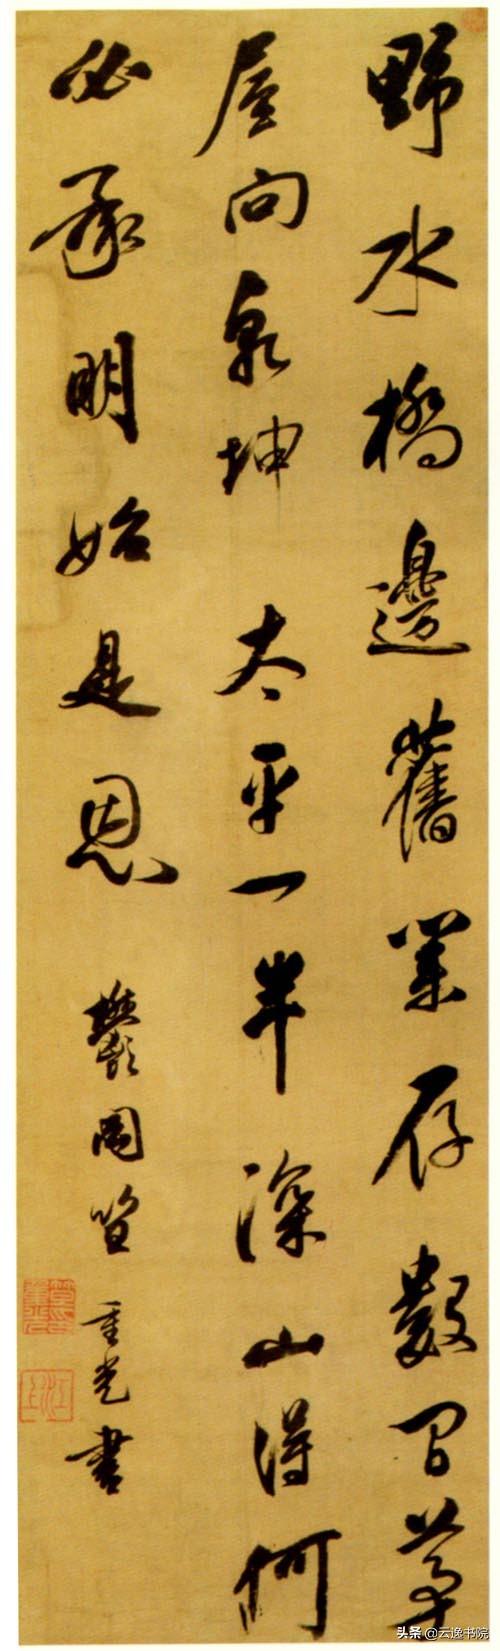 野水橋邊舊業存數間茅
屋向乾坤太平一半深山得何
必承明始是恩
鬱岡笪重光書
江上
头条 @云逸书院